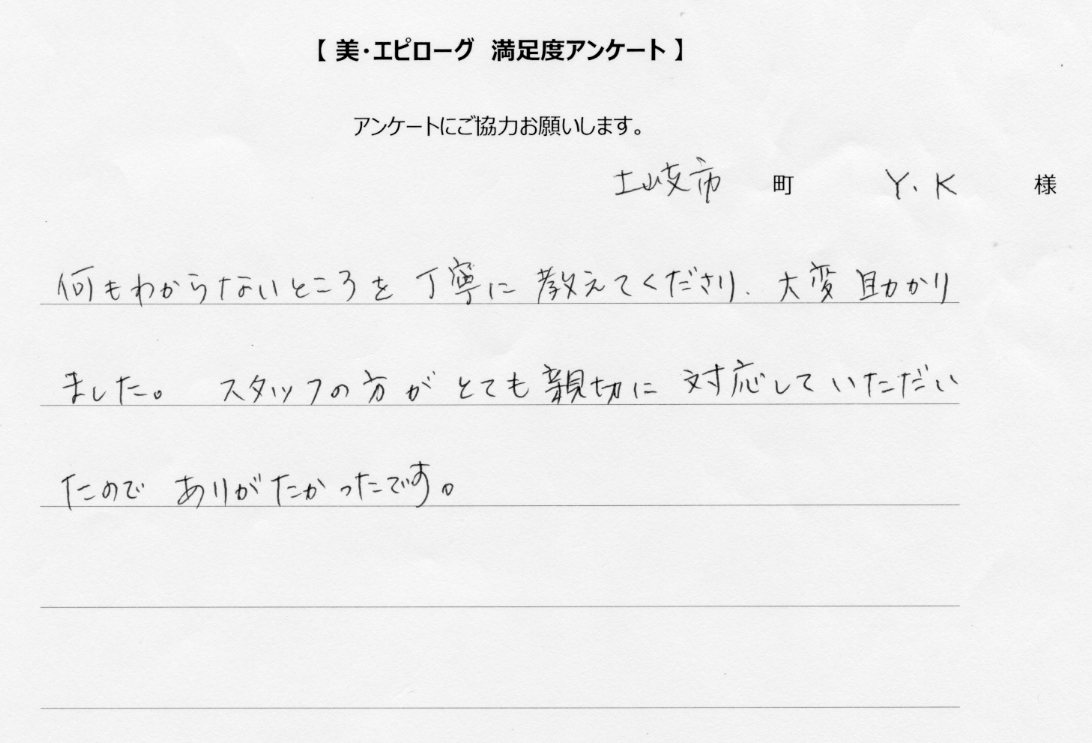 【 美・エピローグ 満足度アンケート 】
アンケートにご協力お願いします。
土岐市 町 Y.K 様
何もわからないところを 丁寧に 教えてくださり、大変 助かり
ました。 スタッフの方が とても 親切に 対応していただい
たので ありがたかったです。